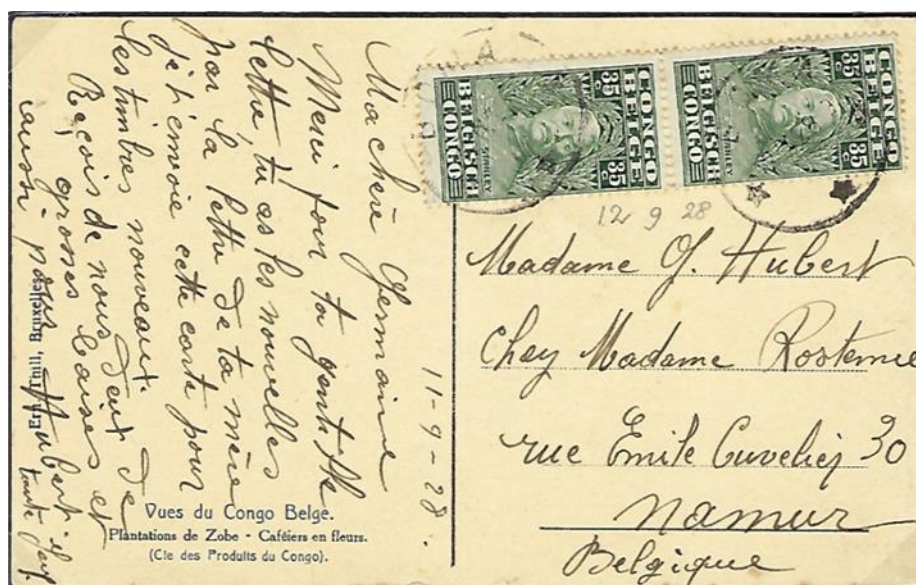 11-9-28.
Ma chère Germaine
Merci pour ta gentille
lettre, tu as les nouvelles
par la lettre de ta mère
j't'envoie cette carte pour
les timbres nouveaux.
Reçois de nous deux de
grosses baises et
aussi pour Hubert
tante
Vues du Congo Belge.
Plantations de Zobe - Caféiers en fleurs.
(Cie des Produits du Congo).
Ern. Thill, Bruxelles
CONGO BELGE
35 c 35 c
STANLEY
BELGISCH CONGO
CONGO BELGE
35 c 35 c
STANLEY
BELGISCH CONGO
12 9 28
Madame G. Hubert
Chez Madame Rostenne
rue Emile Cuvelier 30
Namur
Belgique